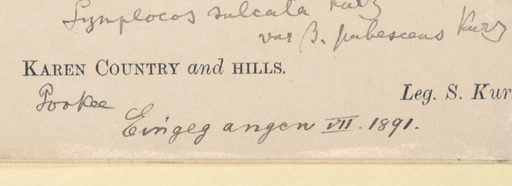 Symplocos sulcata Kurz
var β. pubescens Kurz
KAREN COUNTRY and HILLS.
Pookee
Leg. S. Kur
Eingegangen VII. 1891.